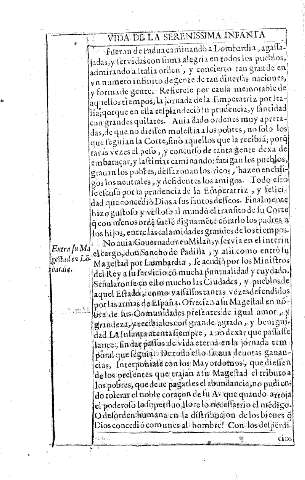 VIDA DE LA SERENISSIMA INFANTA
Fueran de Padua caminando a Lombardia, agassa-
jadas, y servidas con suma alegria en todos los pueblos,
admirando a Italia orden, y concierto tan grande en
vn numero infinito de gente de tan diversas naciones,
y forma de gente. Refierelo por cosa memorable de
aquellos tiempos, la jornada de la Emperatriz por Ita-
lia; porque en ella resplandeciò tu prudencia, y santidad
con grandes quilates. Avia dado ordenes muy apreta-
das, de que no diessen molestia a los pobres, no solo los
que seguian la Corte, sino aquellos que la recibiã; porq̃
varias vezes el peso, y concurso de tanta gente dexa de
embaraçar, y lastima caminando: fatigan los pueblos,
gravan los pobres, dessazonan los ricos, hazen enemi-
gos los neutrales, y desidentes los amigos. Todo esto
se escusò por la prudencia de la Emperatriz, y felici-
dad que concediò Dios a sus santos desseos. Finalmente
hizo gustoso y vistoso al mundo el transito de su Corte
con menos orẽs que se dignamẽte cõtarlo los padres a
los hijos, entre las calamidades grandes de los tiempos.
No avia Governador en Milan, y servia en el interin
el cargo, don Sancho de Padilla, y assi como entrò su
Magestad por Lombardia, se acudiò por los Ministros
del Rey a su servicio cõ mucha puntualidad y cuydado.
Señalaronse en ello mucho las Ciudades, y pueblos de
aquel Estado, como vassallos tantas vezes defendidos
por las armas de España. Ofrecian a su Magestad en nõ-
bre de sus Comunidades presentes de igual amor, y
grandeza, y recibialos con grande agrado, y benigni-
dad. La Infanta atenta siempre, a no dexar que passasse
lance, sin dar passos de vida eterna en la jornada tem-
poral que seguia. De todo esto sacava devotas ganan-
cias. Interponiase con los Mayordomos, que diessen
de los presentes que traian a su Magestad el tributo a
los pobres, que deve pagarles el abundancia, no pudiendo
tolerar el noble coraçon de su Av. que quando arroja
el poderoso lo superfluo, llore lo necessario el mẽdigo.
O desorden humana en la distribucion de los bienes q̃
Dios concediò comunes al hombre! Con los desperdi-
cios
Entra su Ma-
gestad en Lõ-
bardia.